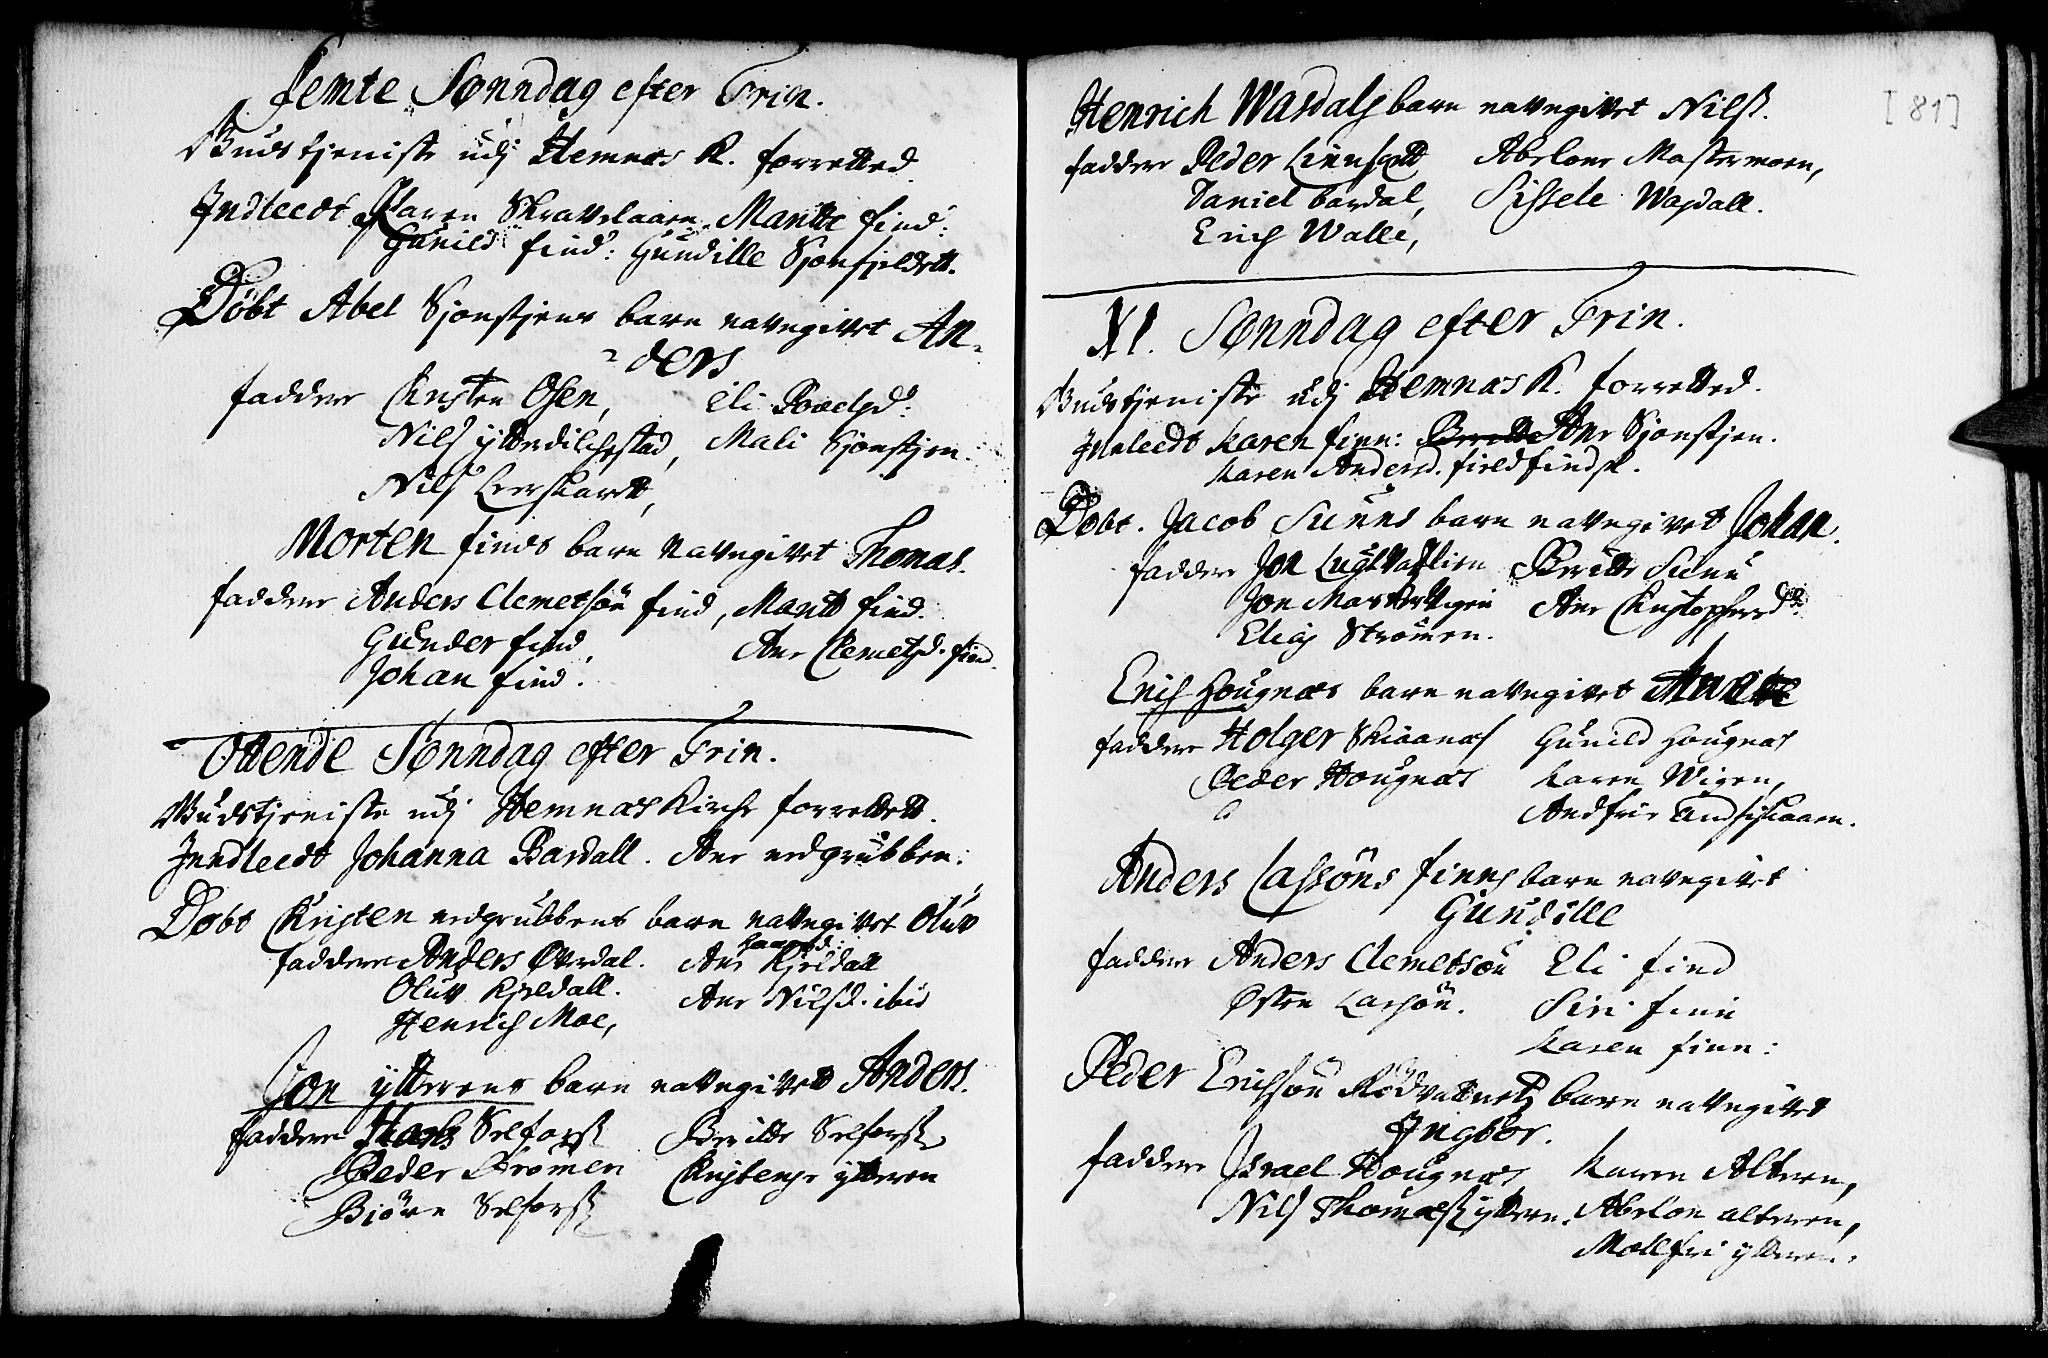 Femte Sønndag efter Trin.
Gudstjeniste udj Hemnæs K. forretted
Indleedt Karen Skravlaaen. Marite find:
Gunild find: Gundille Sjonfjeldett.
Døbt Abel Sjonstjens barn navngivet An-
ders
faddere Christen Osen, Eli Povelsd:
Nils ytterdilchestad, Mali Sjonstjen
Nils Leerskarett,
Morten finds barn navngivet Thomas.
faddere Anders Clemetsøn find, Maritt find.
Gunder find, Ane Clemetsd. find.
Johan find.
Ottende Sønndag efter Trin.
Gudstjeniste udj Hemnæs Kirche forrettett.
Inndleedt Johanna Bardall. Ane nedgrubben:
Døbt Christen nedgrubbens barn navngivet Oluv
faddere Anders Øverdal. Ane Kjeldall
Oluv Kjeldall. Ane Nilsd. ibid
Henrich Moe,
Jon ytterens barn navngivett Anders.
faddere Selforss Beritte Selforss
Peder Strømen Christense ytteren
Biørn Selforss
[81]
Henrich Wasdals barn navngivet Nilss.
faddere Peder Abelone Mastermoen,
Daniel bardal, Sissele Wasdall.
Erich Walle,
XI. Sønndag efter Trin.
Gudstjeniste udj Hemnæs K. forretted.
Indleedt Karen finn: Beritte Ane Sjonstjen.
Karen Andersd. field
Døbt. Jacob Sunds barn navngivet Johan.
faddere Jon Beritte Sund
Jon Ane Christophersd:
Elias Strømen.
Erich Hougnæs barn navngivet
faddere Holger Skiaanæs Gunild Hougnæs
Peder Hougnæs Karen Wigen,
Andfrie
Anders Lassøns finns barn navngivet
Gundille
faddere Anders Clemetsøn Eli find
Østen Larsøn. Siri finn
Karen finn:
Peder Erichsøn Rødvattnets barn navngivet
Ingbor.
faddere Israel Hougnæs Karen Alteren,
Nils Thomæss: ytteren. Abelon alteren,
Mallfri ytteren.